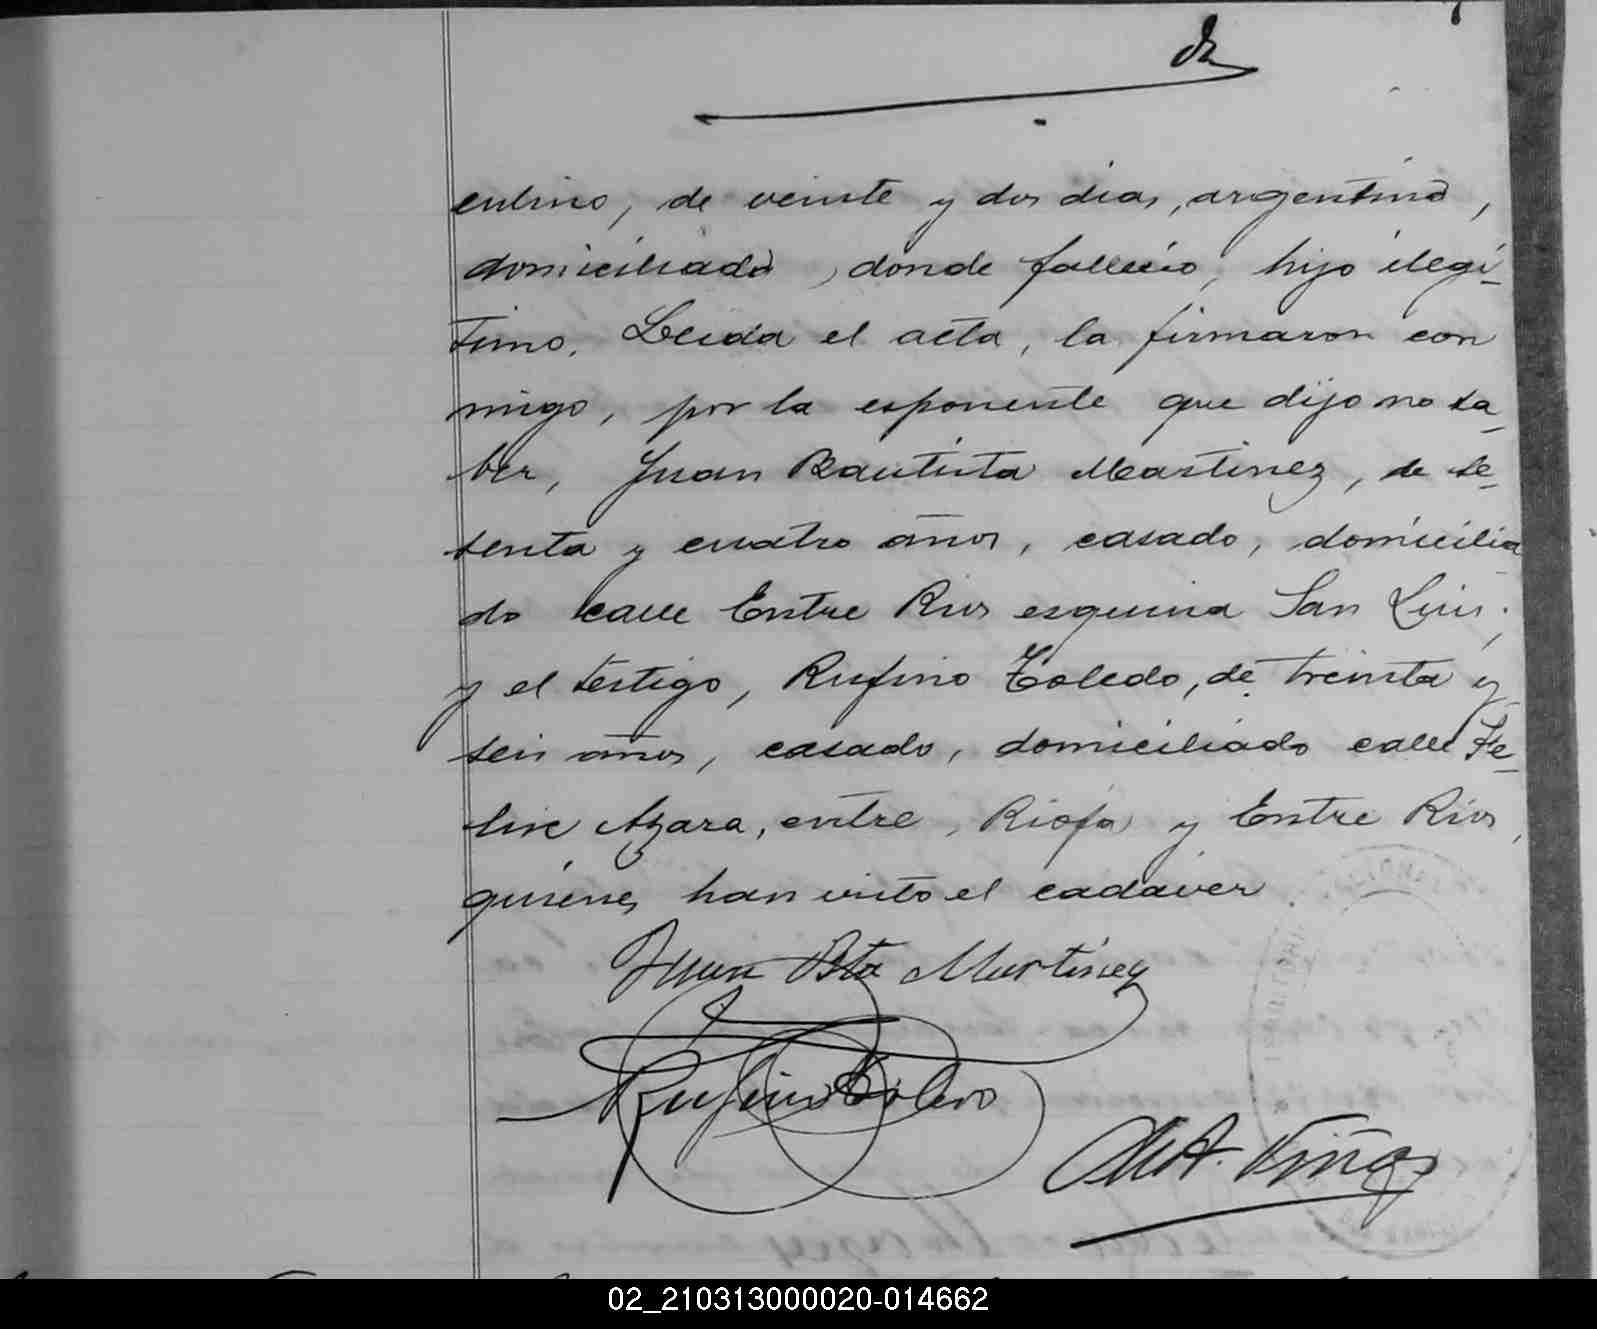 culino, de veinte y dos dias, argentino,
domiciliado, donde fallecio, hijo ilegi-
timo. Leida el acta, la firmaron con
migo, por la esponente que dijo no sa-
ber, Juan Bautista Martinez, de se-
senta y cuatro años, casado, domicilia
do calle Entre Rios esquina San Luis,
y el testigo, Rufino Toledo, de treinta y
seis años, casado, domiciliado calle Fe-
lix Azara, entre, Rioja y Entre Rios,
quienes han visto el cadáver.
Juan Bta Martinez
Rufino Toledo
02_210313000020-014662